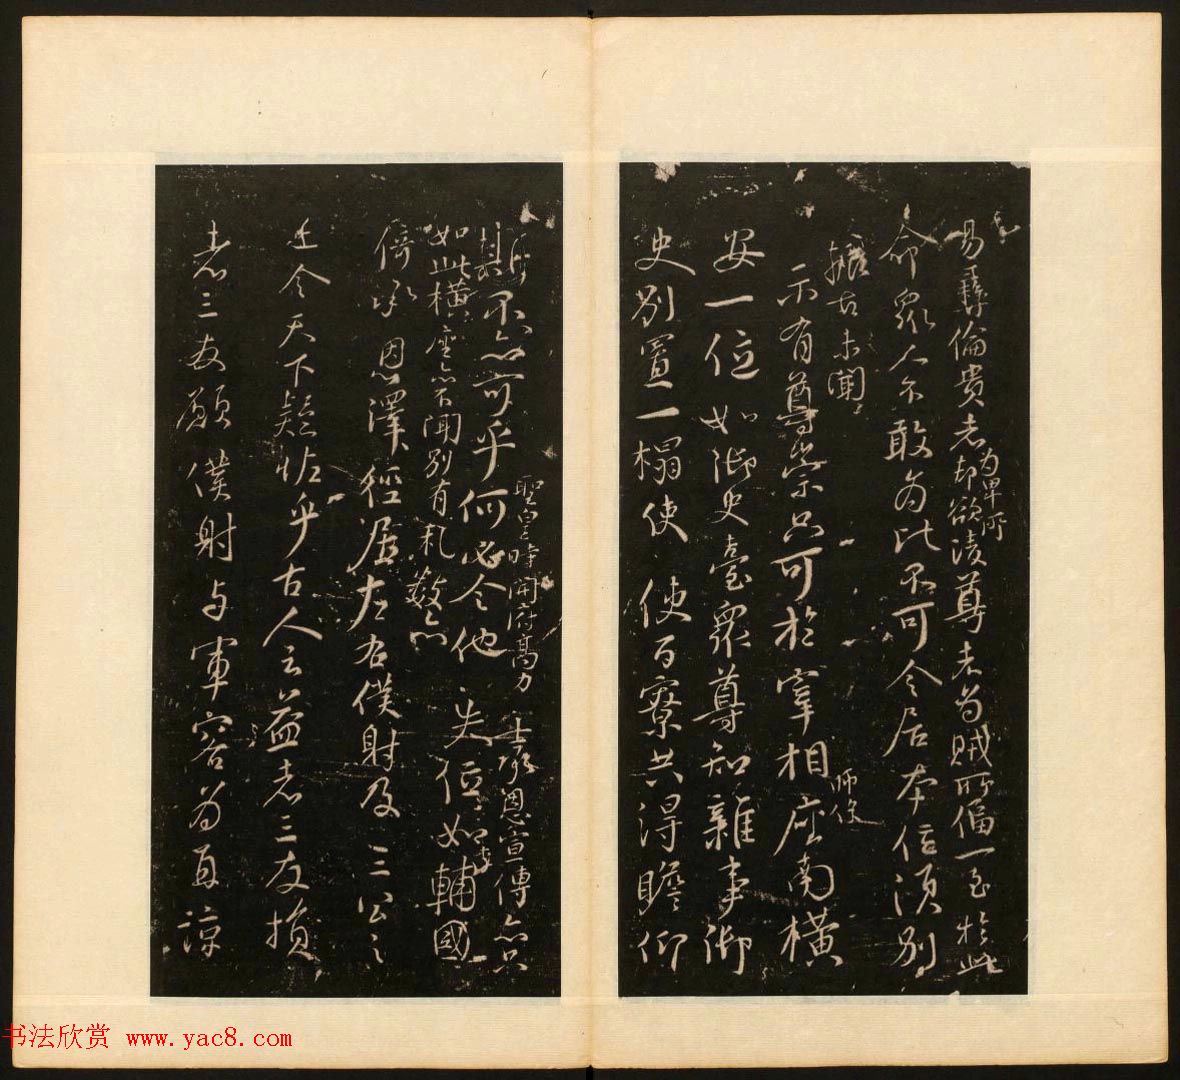 易彝倫貴者為卑所却欲漬尊者為賊所偪一至於此
命衆人不敢為比不可令居本位須別
古未聞
示有尊崇只可於宰相師保座南橫
安一位如御史臺衆尊知雜事御
史別置一榻使使百寮共得瞻仰
不亦可乎
聖皇時開府高力士承恩宣傳亦只
如此橫座亦不聞別有礼數亦
何必令他失位如李輔國
倚承恩澤徑居左右僕射及三公之
上令天下疑怪乎古人云益者三友損
者三友願僕射与軍容為直諒
书法欣赏 www.yac8.com